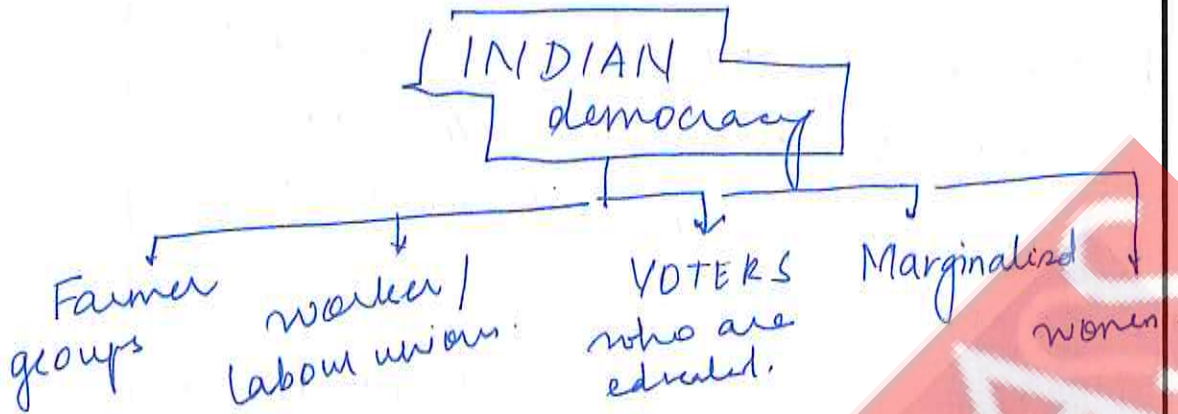 INDIAN
democracy
Farmer
groups
worker /
labour unions.
VOTERS
who are
educated.
Marginalized
women